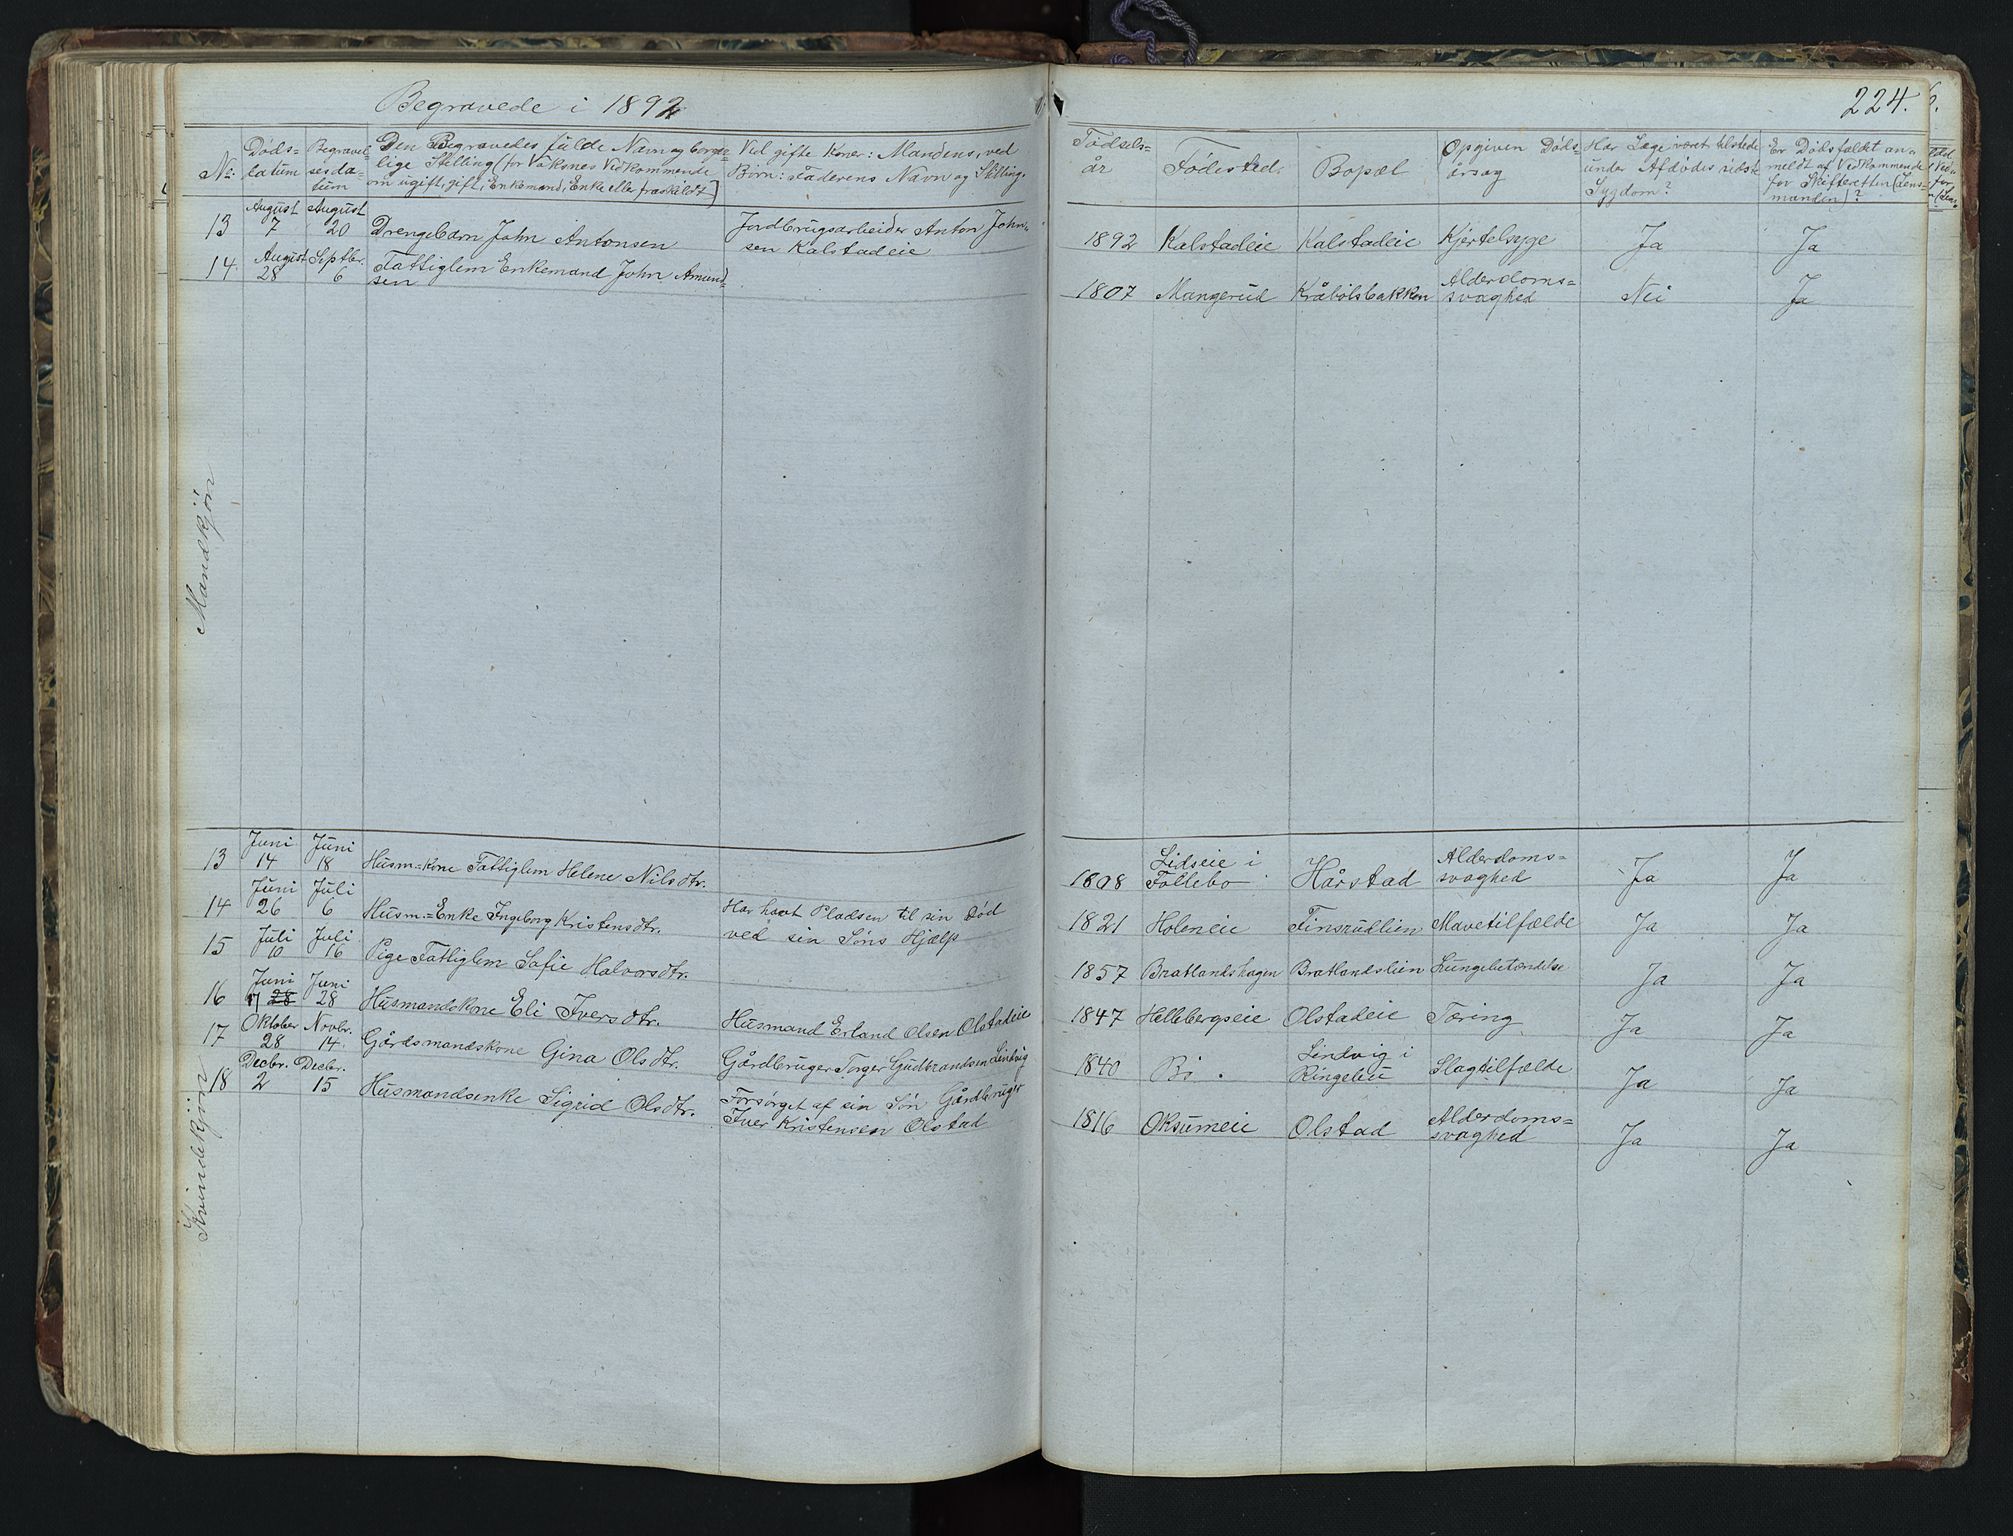 Begravede i 1892
224.
No.
Døds-
datum
Begravel-
sesda-
tum
Den Begravedes fulde Navn og borger-
lige Stilling (for Voksnes Vedkommende
om ugift, gift, Enkemand, Enke eller fraskildt)
Ved gifte Koner: Mandens, ved
Børn: Faderens Navn og Stilling.
Fødsels-
år
Fødested.
Bopæl
Opgiven Døds-
årsag
Har Læge været tilstede
under Afdødes sidste
Sygdom?
Er Dødsfaldet an-
meldt af Vedkommende
for Skifteretten (Lens-
manden)?
Mandkjøn
13 August 7 August 20 Drengebarn John Antonsen Jordbrugsarbeider Anton John-
sen Kalstadeie 1892 Kalstadeie Kalstadeie Kjertelsyge Ja Ja
14 August 28 Septbr. 6 Fattiglem Enkemand John Amund-
sen 1807 Mangerud Kråbølsbakken Alderdoms-
svaghed Nei Ja
Kvindekjøn
13 Juni 14 Juni 18 Husm.-kone Fattiglem Helene Nilsdtr. 1808 Lidseie i
Follebo Hårstad Alderdoms-
svaghed Ja Ja
14 Juni 26 Juli 6 Husm.-Enke Ingeborg Kristensdtr. Har havt Pladsen til sin Død
ved sin Søns Hjælp 1821 Holeneie Finsrudlien Mavetilfælde Ja Ja
15 Juli 10 Juli 16 Pige Fattiglem Sofie Halvorsdtr. 1857 Bratlandshagen Bratlandslien Lungebetændelse Ja Ja
16 Juni 17 28 Juni 28 Husmandskone Eli Iversdtr. Husmand Erland Olsen Olstadeie 1847 Hellebergseie Olstadeie Tæring Ja Ja
17 Oktober 28 Novbr. 14. Gårdsmandskone Gina Olsdtr. Gårdbruger Torger Gudbrandsen Lindvig 1840 Bø. Lindvig i
Ringebu Slagtilfælde Ja Ja
18 Decbr. 2 Decbr. 15 Husmandsenke Sigrid Olsdtr. Forsørget af sin Søn Gårdbruger
Iver Kristensen Olstad 1816 Oksumeie Olstad Alderdoms-
svaghed Ja Ja